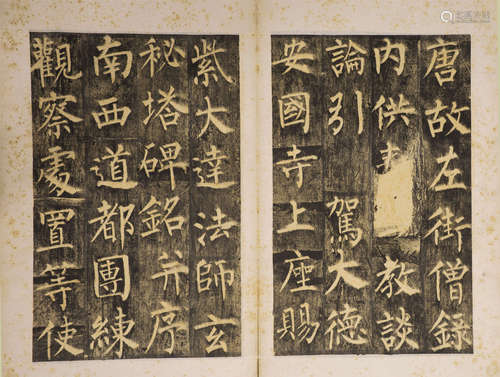 唐故左街僧錄
內供 教談
論引 駕大德
安國寺上座賜
紫大達法師玄
秘塔碑銘并序
南西道都團練
觀察處置等使